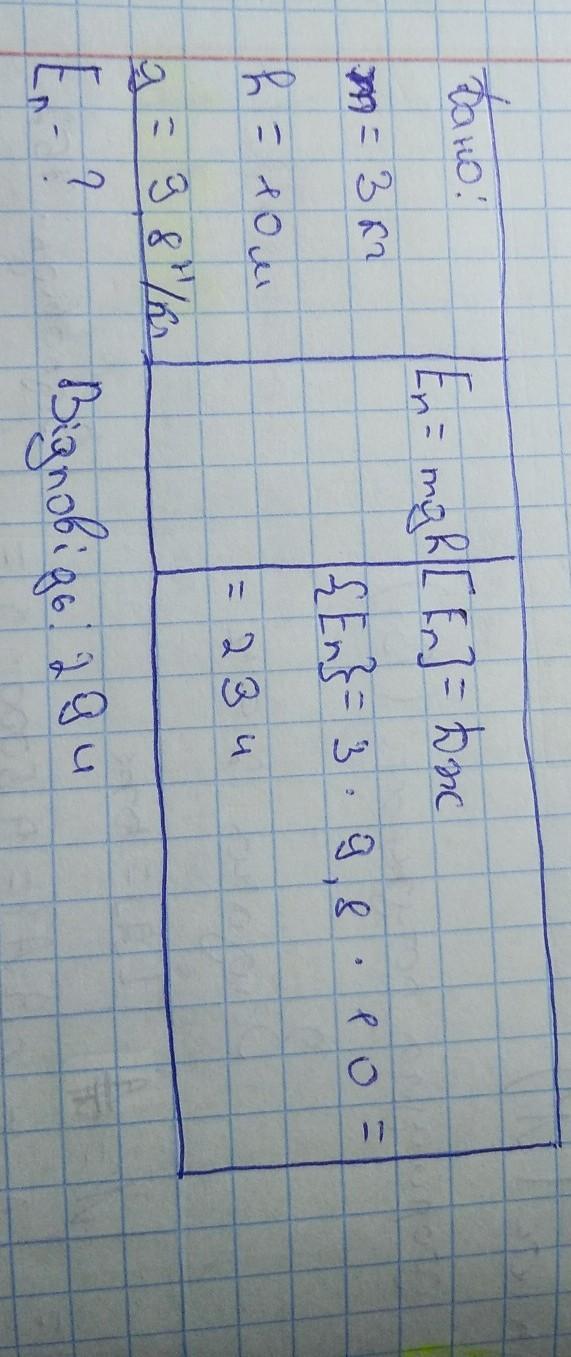 Дано:
m = 3 кг
h = 10 м
g = 9 8 Н/кг
Eп - ?
Eп = mgh
[Eп] = Дж
{Eп} = 3 · 9,8 · 10 =
= 294
Відповідь: 294